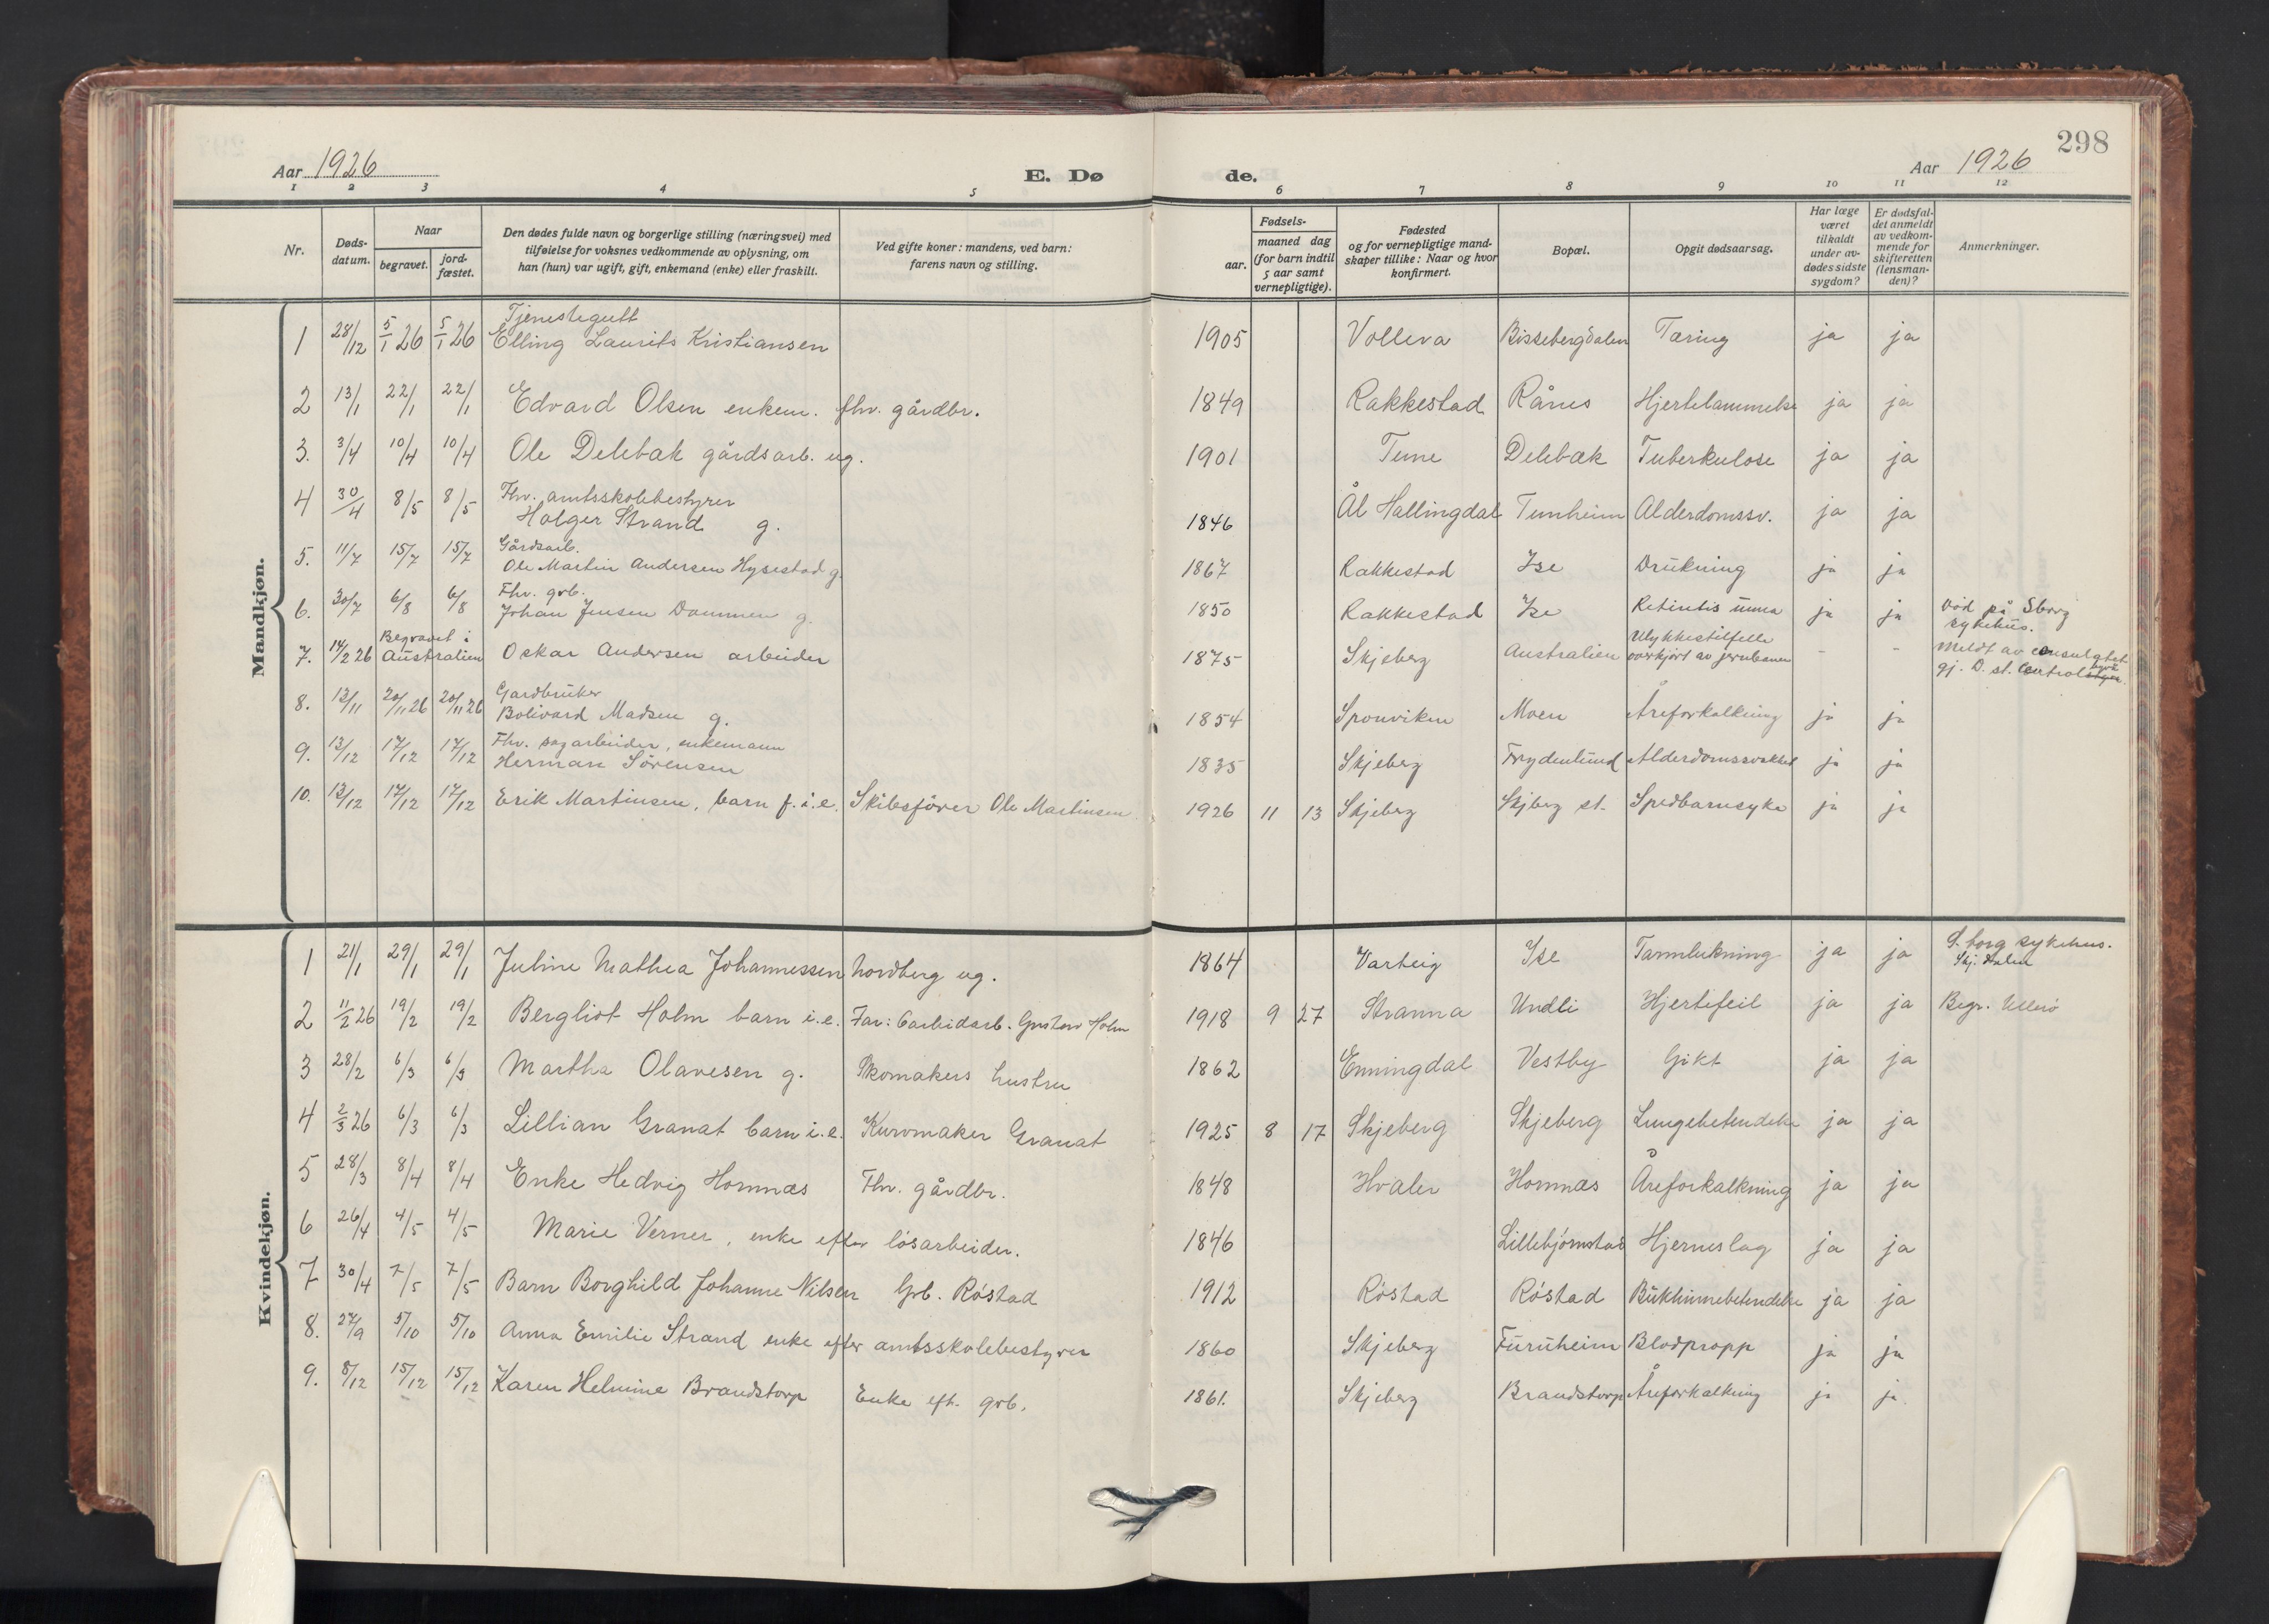 298
Aar 1926 E. Dø de. Aar 1926
1 2 3 4 5 6 7 8 9 10 11 12
Nr. | Døds-datum. | Naar begravet. | jord-fæstet. | Den dødes fulde navn og borgerlige stilling (næringsvei) med tilføielse for voksnes vedkommende av oplysning, om han (hun) var ugift, gift, enkemand (enke) eller fraskilt. | Ved gifte koner: mandens, ved barn: farens navn og stilling. | Fødsels- aar. | maaned dag (for barn indtil 5 aar samt vernepligtige). | Fødested og for vernepligtige mand-skaper tillike: Naar og hvor konfirmert. | Bopæl. | Opgit dødsaarsag. | Har læge været tilkaldt under av-dødes sidste sygdom? | Er dødsfal-det anmeldt av vedkom-mende for skifteretten (lensman-den)? | Anmerkninger.
Mandkjøn.
1 28/12 5/1 26 5/1 26 Tjenestegutt Elling Laurits Kristiansen 1905 Volleva Bissebergdalen Tæring ja ja
2 13/1 22/1 22/1 Edvard Olsen enkem. fhv. gårdbr. 1849 Rakkestad Rånes Hjertelammelse ja ja
3. 3/4 10/4 10/4 Ole Delebak gårdsarb. ug. 1901 Tune Delebæk Tuberkulose ja ja
4 30/4 8/5 8/5 Fhv. amtsskolebestyrer Holger Strand g. 1846 Ål Hallingdal Tunheim Alderdomssv. ja ja
5. 11/7 15/7 15/7 Gårdsarb. Ole Martin Andersen Hysestad g. 1867 Rakkestad Ise Drukning ja ja
6. 30/7 6/8 6/8 Fhv. grb. Johan Jensen Dammen g. 1850 Rakkestad Ise ja ja Död på Sborg sykehus.
7. 14/2 26 Begravet i Australien Oskar Andersen arbeider 1875 Skjeberg Australien Ulykkestilfelle overkjört av jernbanen - - Meldt av consulatet gj. D. st. Centralbyrå
8. 13/11 20/11 26 20/11 26 Gardbruker Bolivard Madsen g. 1854 Sponviken Moen Åreforkalkning ja ja
9. 13/12 17/12 17/12 Fhv. sagarbeider, enkemann Herman Sörensen 1835 Skjeberg Frydenlund Alderdomssvakhet ja ja
10. 13/12 17/12 17/12 Erik Martinsen, barn f. i. e. Skibsförer Ole Martinsen. 1926 11 13 Skjeberg Skjberg st. Spedbarnsyke ja ja
Kvindekjøn.
1 21/1 29/1 29/1 Juline Mathea Johannessen Nordberg ug. 1864 Varteig Ise Tarmlukning ja ja S. borg sykehus. Skj. Dalen
2 11/2 26 19/2 19/2 Bergliot Holm barn i. e. Far: Carbidarb. Gustav Holm 1918 9 27 Stranna Undli Hjertefeil ja ja Begr. Ullerö
3 28/2 6/3 6/3 Martha Olavesen g. Skomakers hustru 1862 Enningdal Vestby Gikt ja ja
4 2/3 26 6/3 6/3 Lillian Granat barn i. e. Kurvmaker Granat 1925 8 17 Skjeberg Skjeberg Lungebetendelse ja ja
5 28/3 8/4 8/4 Enke Hedvig Hornnæs Fhv. gårdbr. 1848 Hvaler Hornnæs Åreforkalkning ja ja
6 26/4 4/5 4/5 Marie Verner, enke efter lösarbeider. 1846 Lillebjörnstad Hjerneslag ja ja
7 30/4 7/5 7/5 Barn Borghild Johanne Nilsen Grb. Röstad 1912 Röstad Röstad Bukhinnebetendelse ja ja
8. 27/9 5/10 5/10 Anna Emilie Strand enke efter amtsskolebestyrer 1860 Skjeberg Furuheim Blodpropp ja ja
9. 8/12 15/12 15/12 Karen Helmine Brandstorp Enke eft. grb. 1861. Skjeberg Brandstorp Åreforkalkning ja ja.